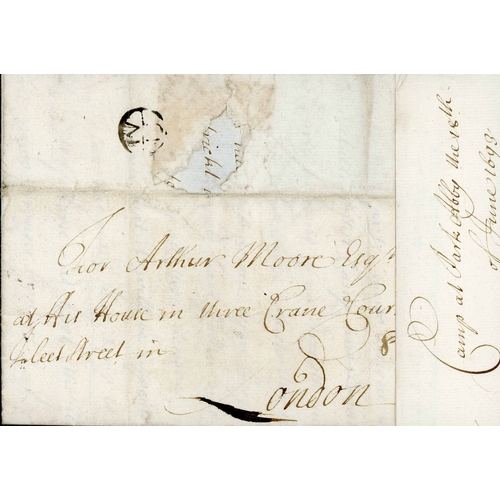 For Arthur Moore Esqr
at His House in three Crane Cour
fleet street in
London
8
Camp at Park Abby the 18th
of June 1693